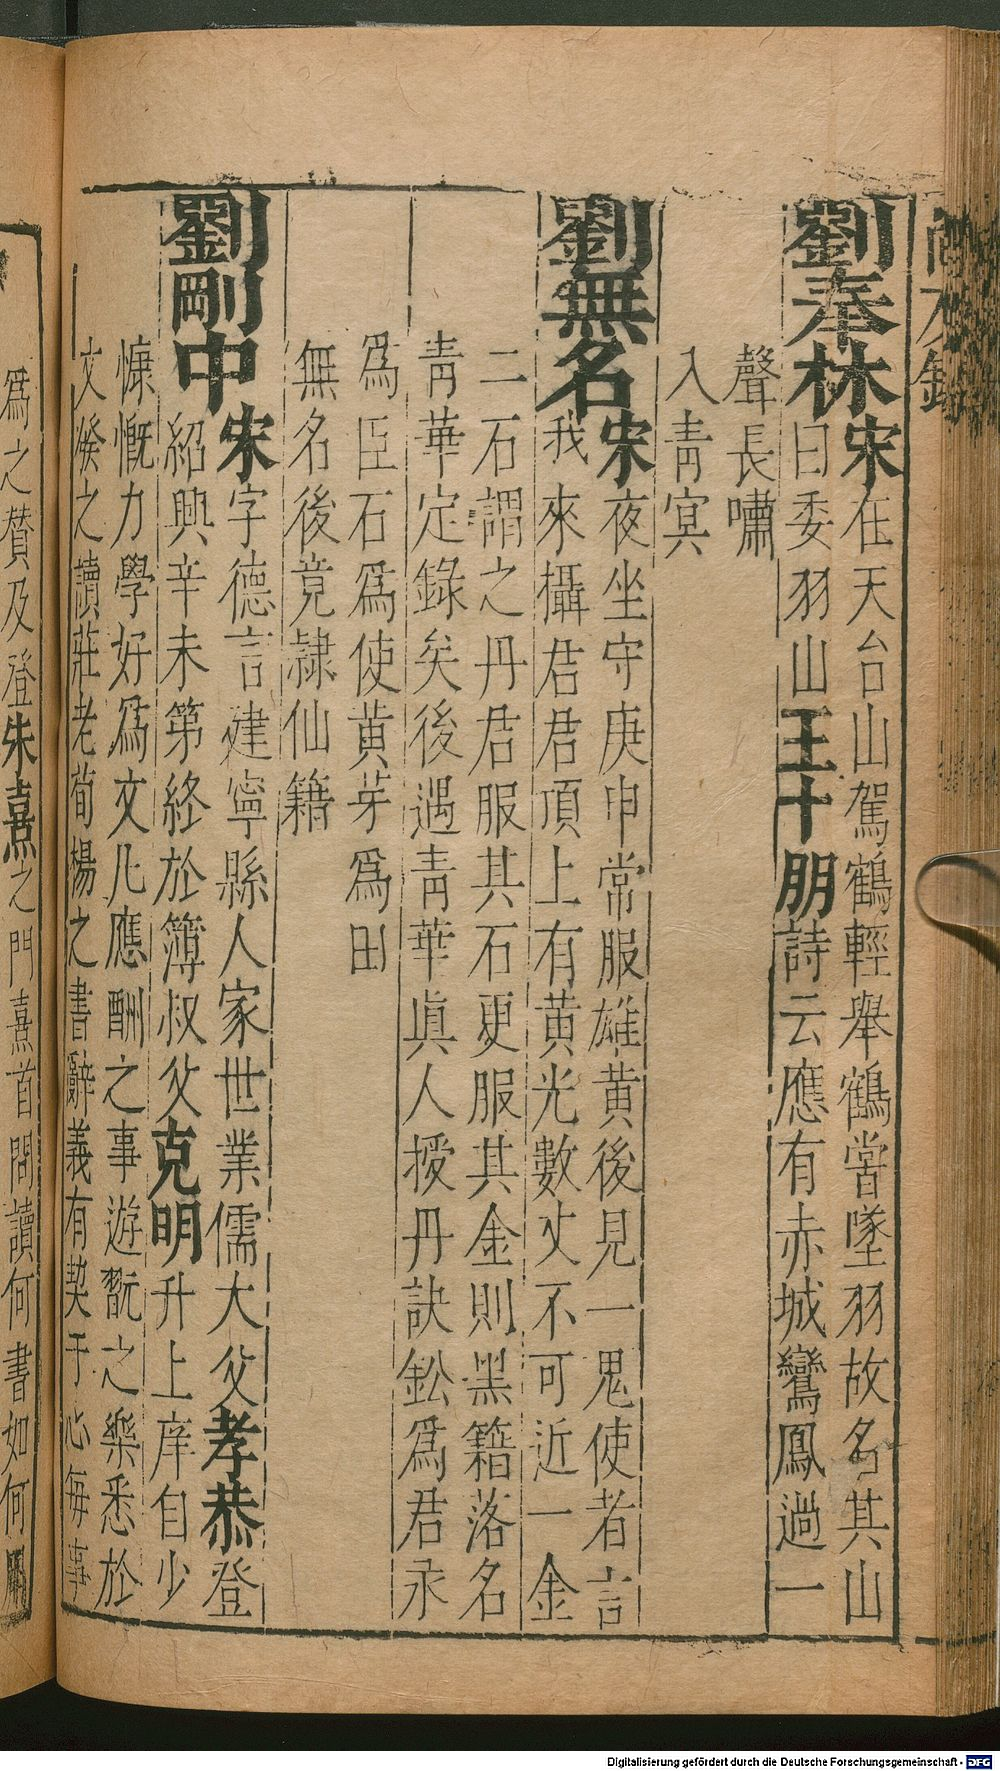 劉奉林宋在天台山駕鶴輕舉鶴嘗墜羽故名其山
曰委羽山王十朋詩云應有赤城鸞鳳過一
聲長嘯
入青冥
劉無名宋夜坐守庚申常服雄黃後見一鬼使者言
我來攝君君頂上有黃光數丈不可近一金
二石謂之丹君服其石更服其金則黑籍落名
青華定錄矣後遇青華眞人授丹訣鈆爲君汞
爲臣石爲使黃芽爲田
無名後竟隷仙籍
劉剛中宋字德言建寧縣人家世業儒大父孝恭登
紹興辛未第終於簿叔父克明升上庠自少
慷慨力學好爲文凡應酬之事遊翫之樂悉於
文發之讀莊老荀楊之書辭義有契于心每事
爲之贊及登朱熹之門熹首問讀何書如何
Digitalisierung gefördert durch die Deutsche Forschungsgemeinschaft - DFG